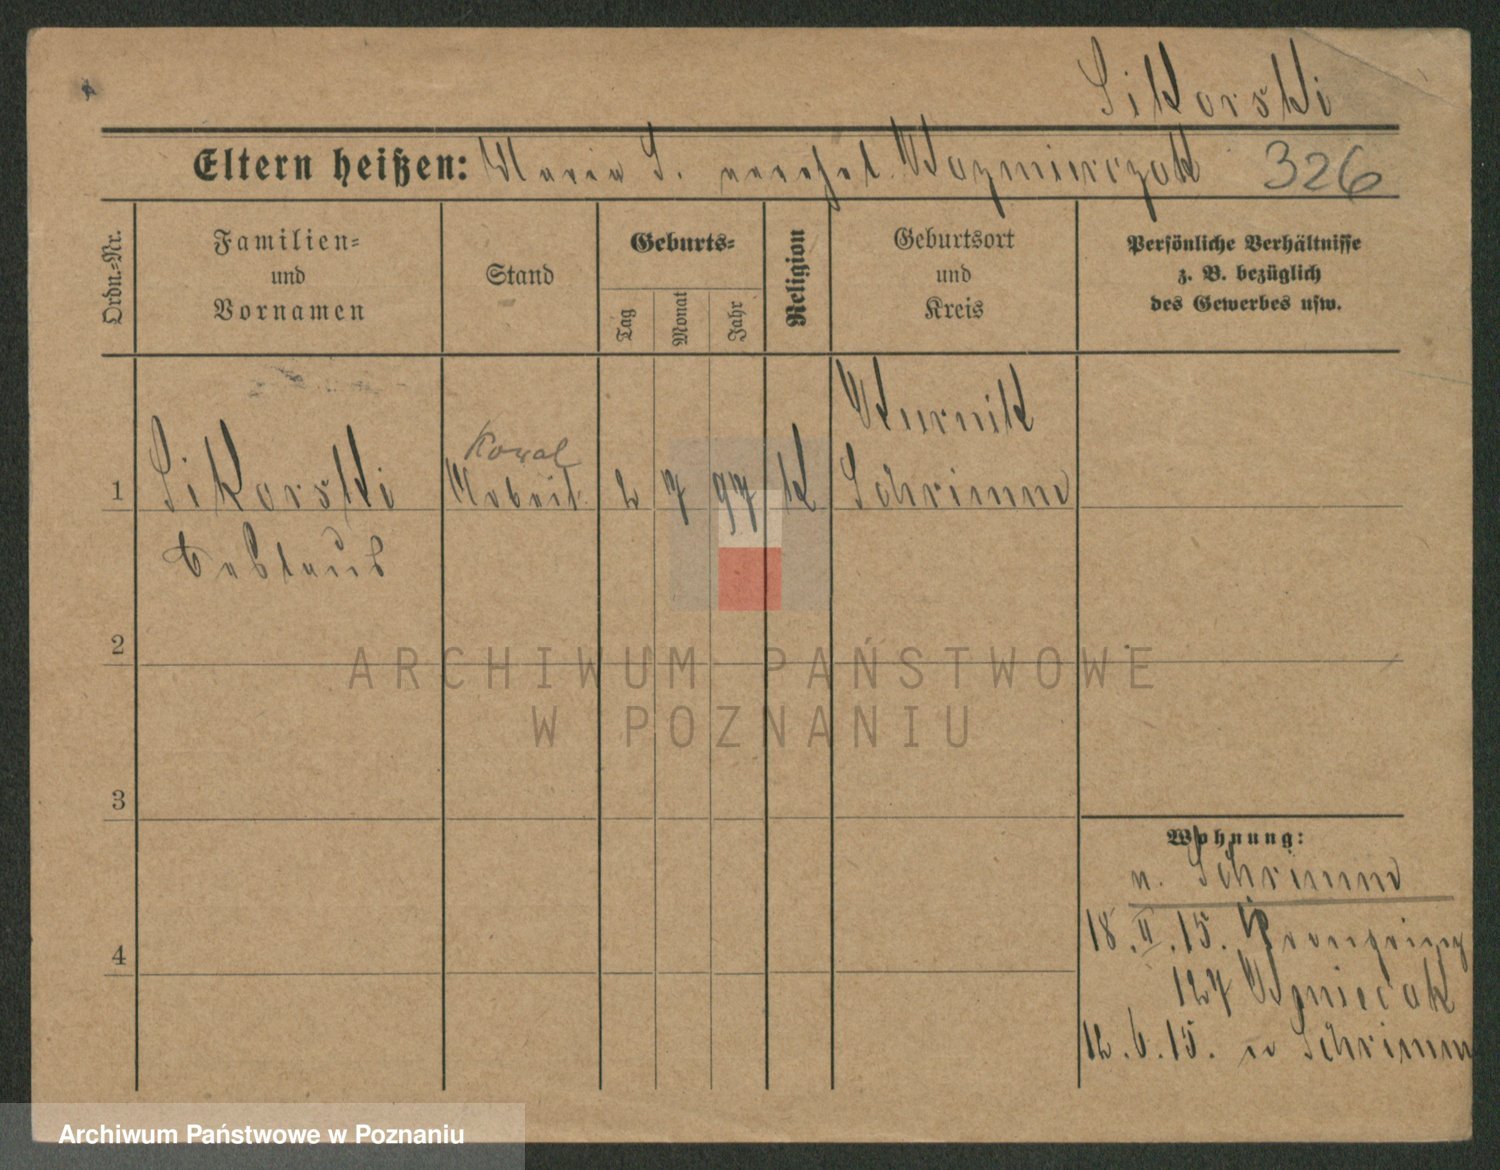 Sikorski
Eltern heißen: Maria S. verehel. Kazmierczak 326
Ordn.-Nr.
Familien- und Vornamen
Stand
Geburts-
Tag
Monat
Jahr
Religion
Geburtsort und Kreis
Persönliche Verhältnisse
z. B. bezüglich
des Gewerbes usw.
Kurnik
Kowal
1 Sikorski Arbeit. 2 7 97 K Schrimm
2
3
4
Wohnung:
n. Schrimm
18.II.15. Kronprinz
127
12.6.15. n Schrimm
ARCHIWUM PAŃSTWOWE
W POZNANIU
Archiwum Państwowe w Poznaniu